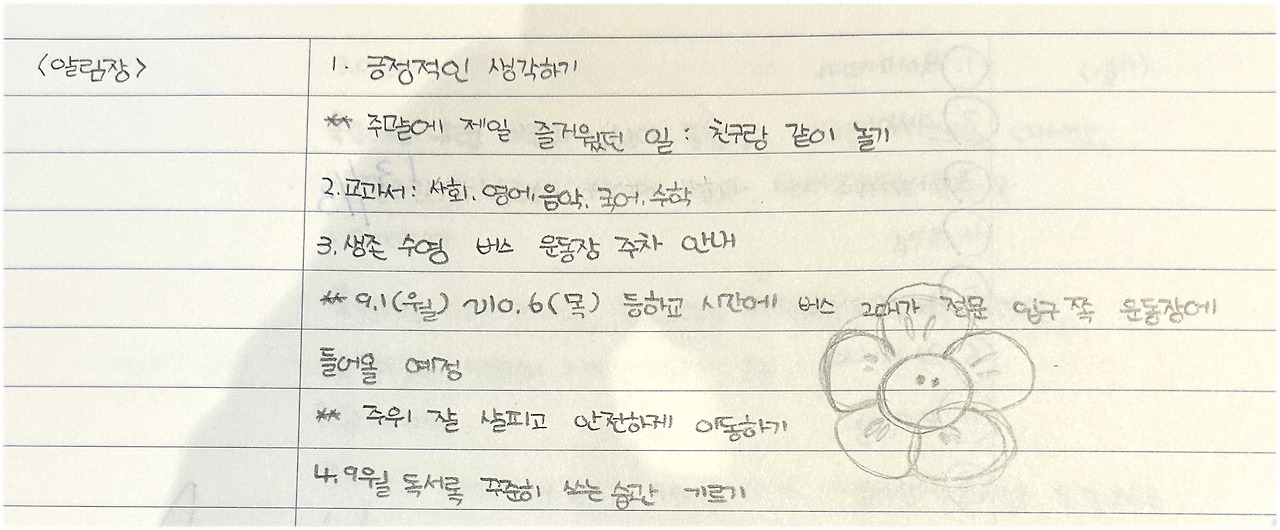 <알림장>
1. 긍정적인 생각하기
** 주말에 제일 즐거웠던 일 : 친구랑 같이 놀기
2. 교과서 : 사회, 영어, 음악, 국어, 수학
3. 생존 수영 버스 운동장 주차 안내
** 9.1(월) ~10.6(목) 등하교 시간에 버스 2대가 정문 입구 쪽 운동장에
들어올 예정
** 주위 잘 살피고 안전하게 이동하기
4. 9월 독서록 꾸준히 쓰는 습관 기르기